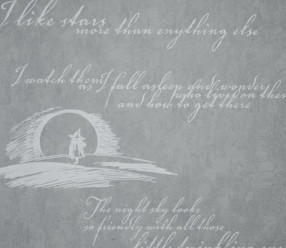 I like stars
more than anything else
I watch them
as I fall asleep and wonder
who lives on them
and how to get there
The night sky looks
so friendly with all those
little twinkling